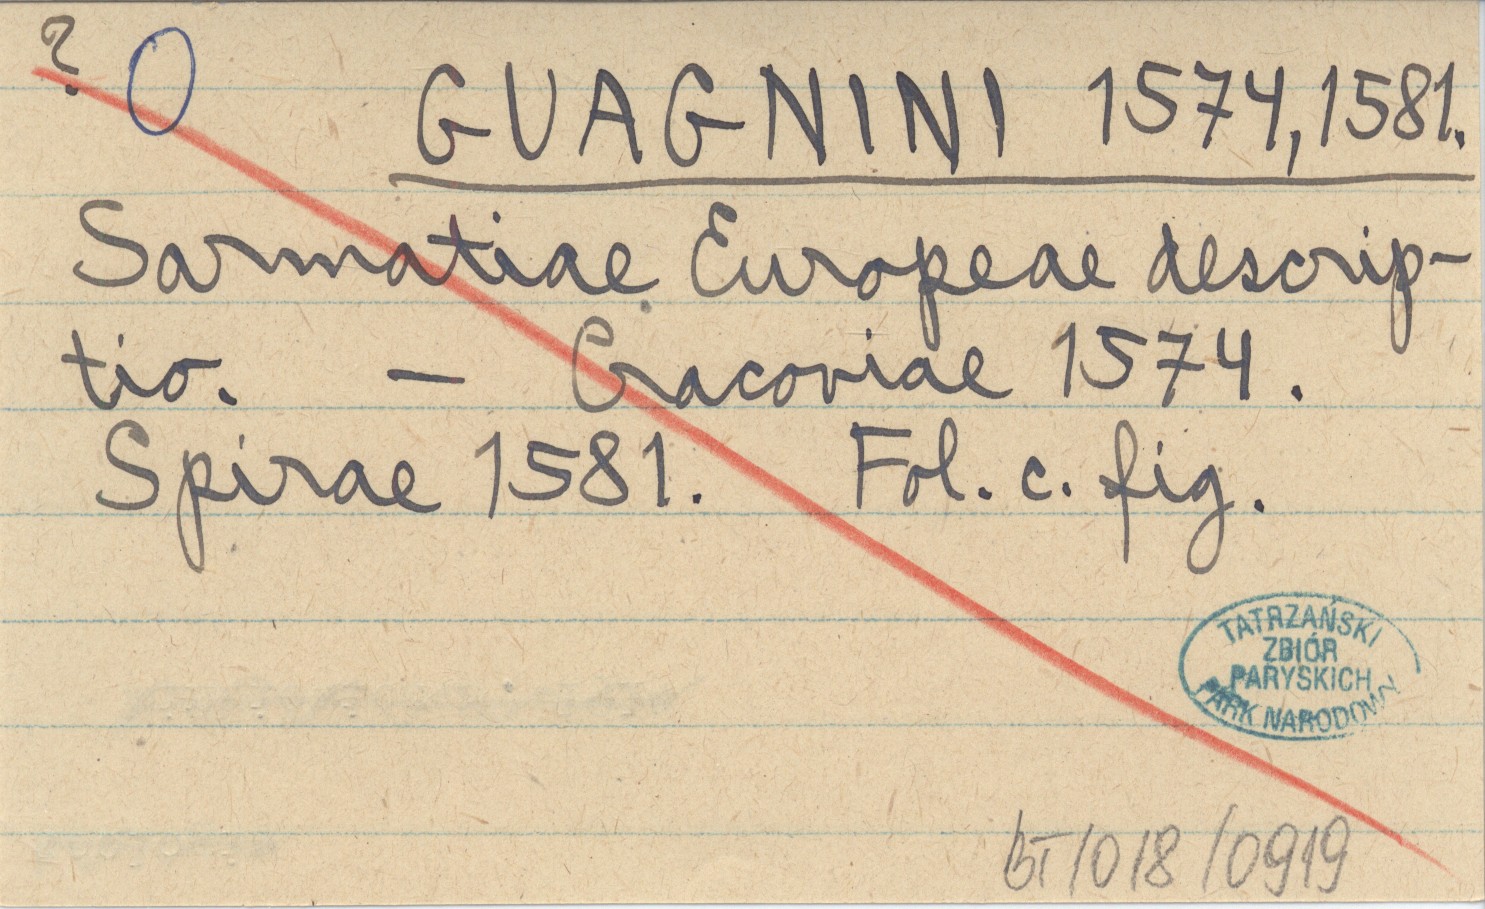 ? O
GUAGNINI 1574, 1581.
Sarmatiae Europeae descrip-
tio. – Cracoviae 1574.
Spirae 1581. Fol. c. fig.
TATRZAŃSKI
ZBIÓR
PARYSKICH
PARK NARODOWY
BT/018/0919